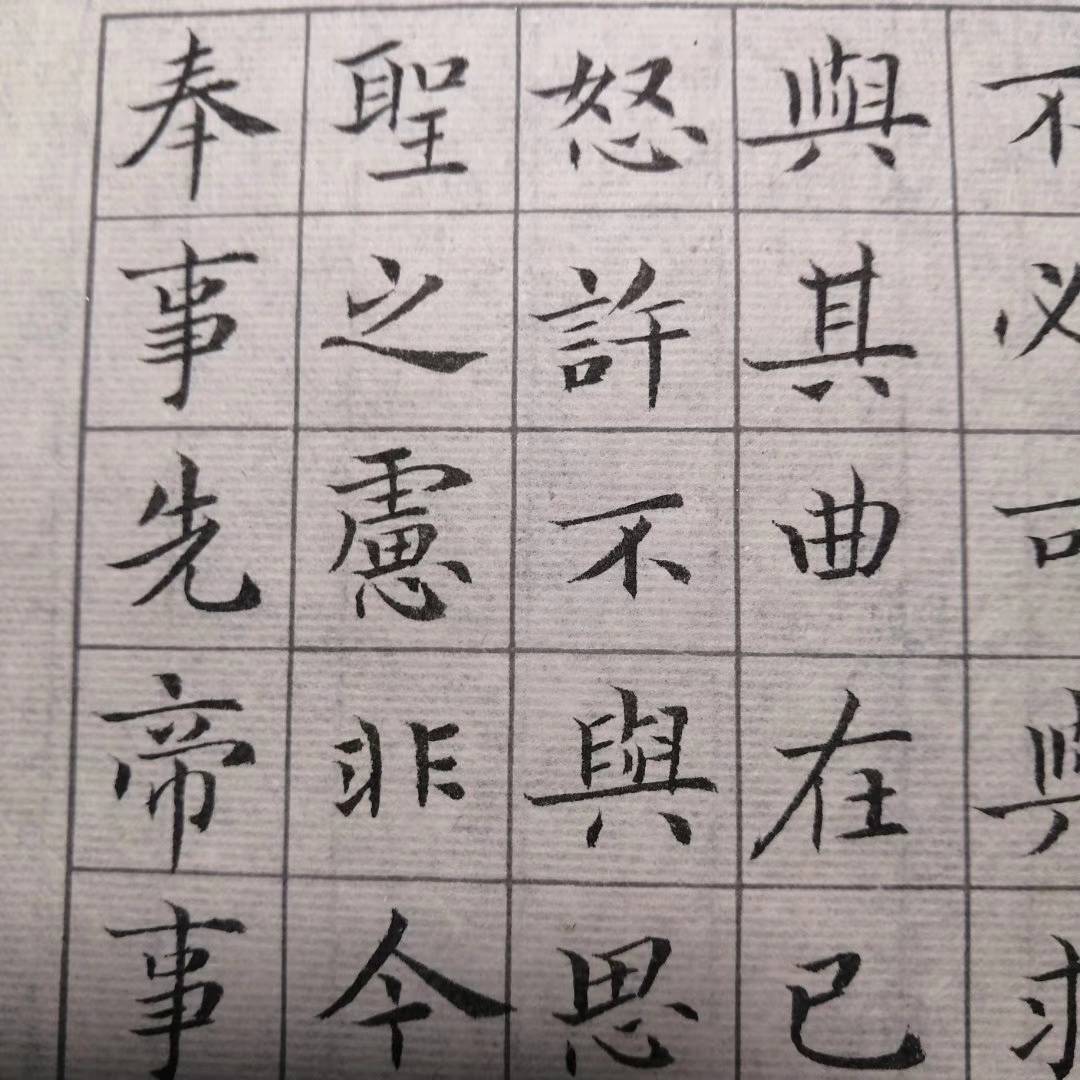 不必可與求
與其曲在已
怒許不與思
聖之慮非今
奉事先帝事